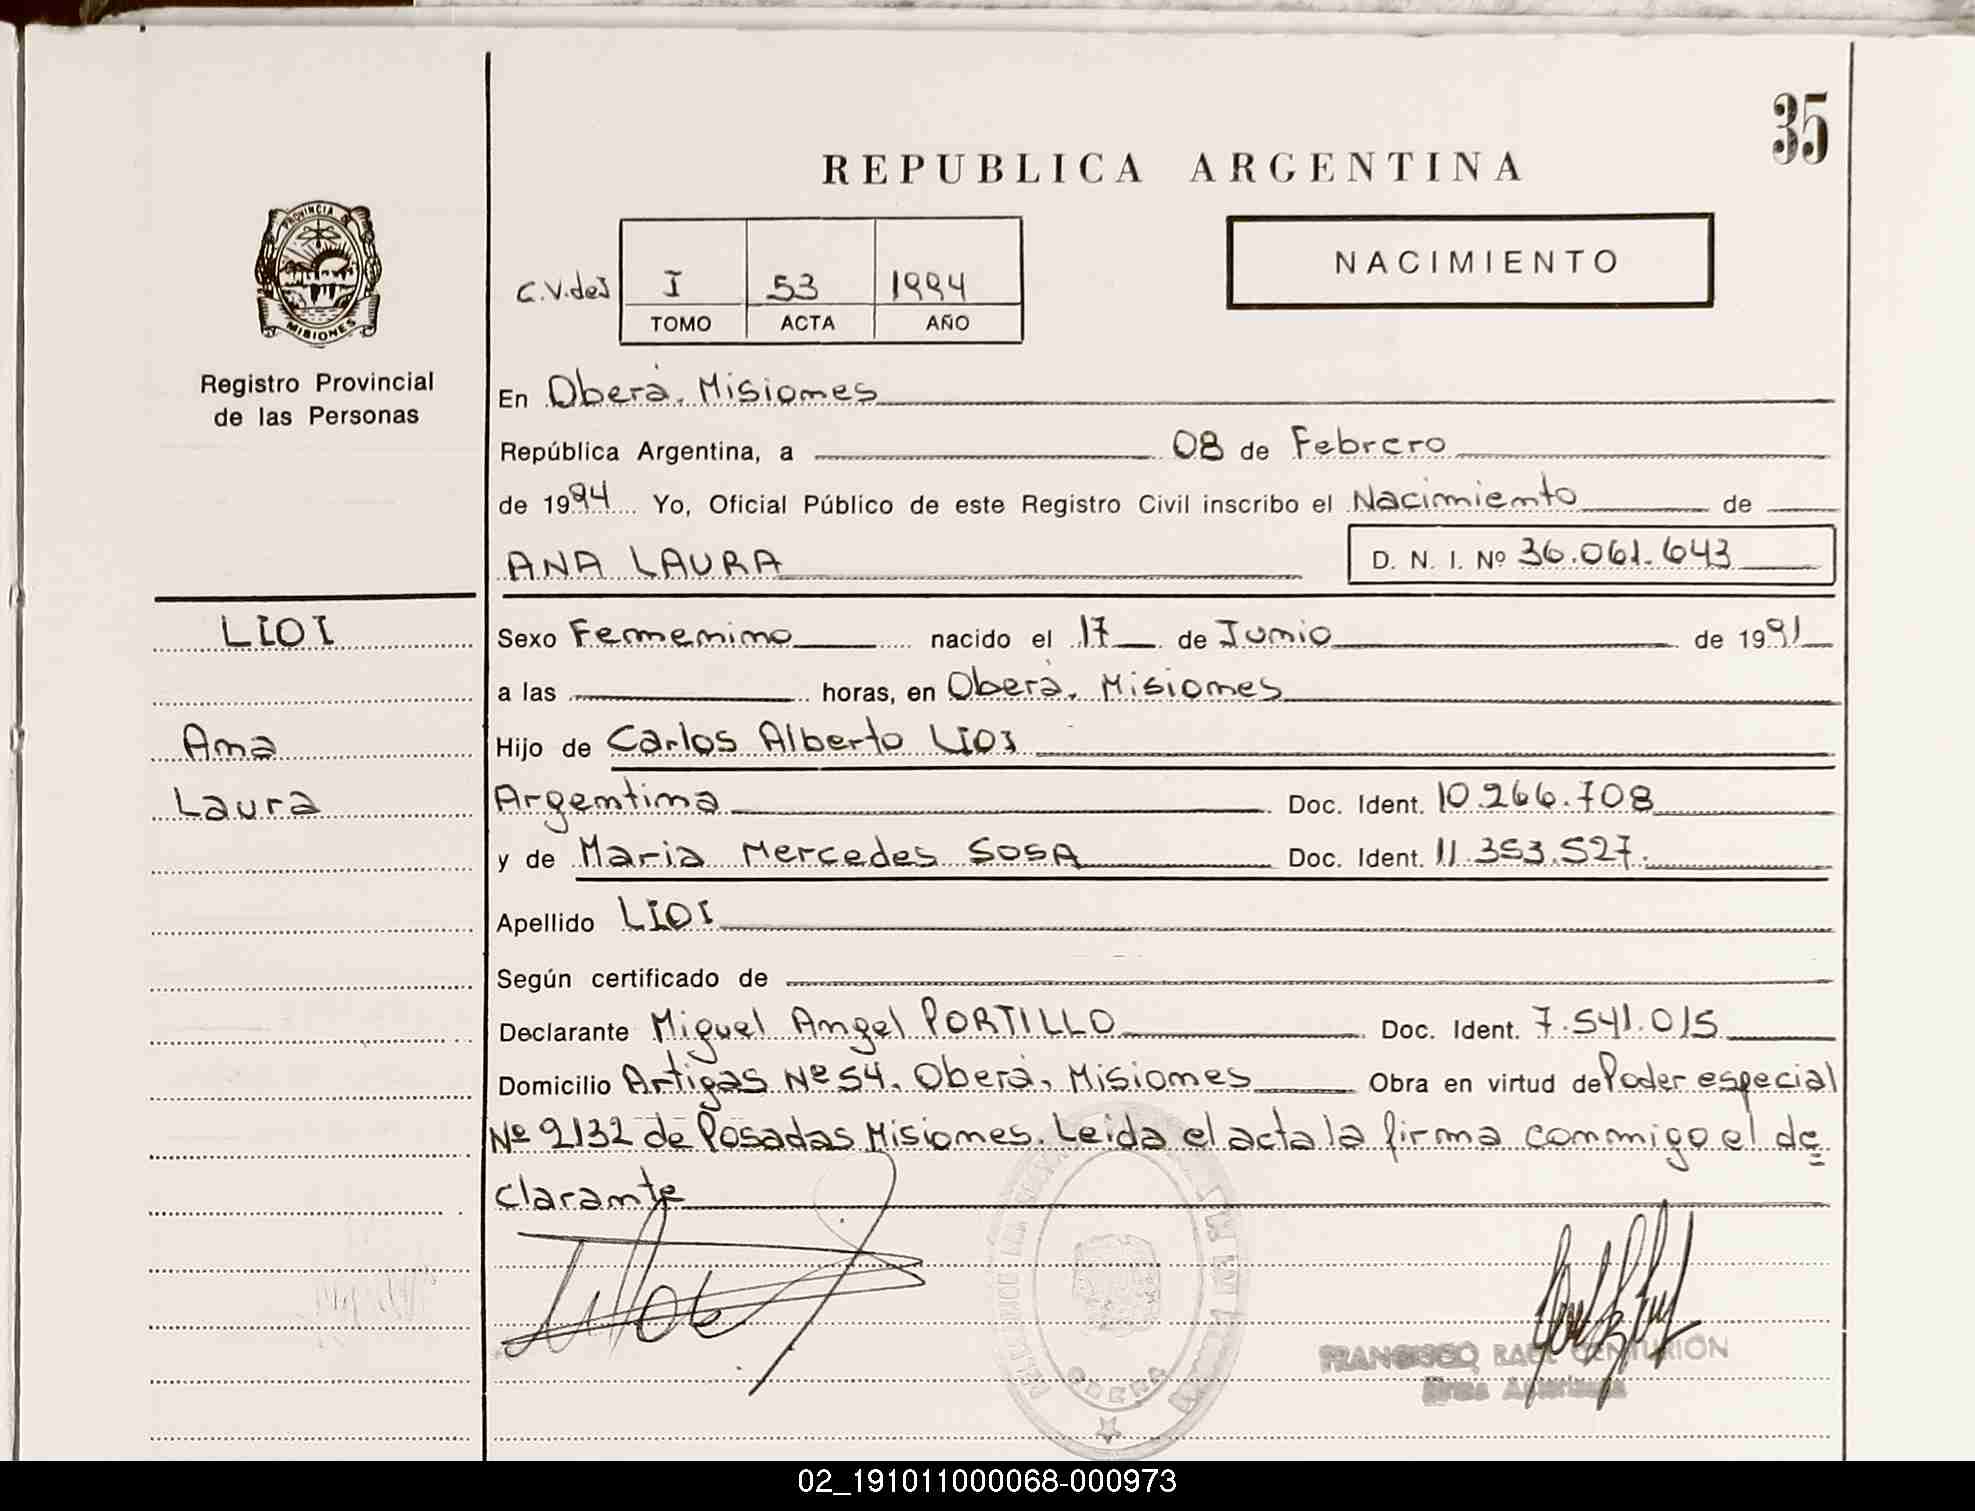 35
REPUBLICA ARGENTINA
PROVINCIA DE
MISIONES
Registro Provincial
de las Personas
NACIMIENTO
C.V.deJ I 53 1994
TOMO ACTA AÑO
En Oberá. Misiones
República Argentina, a 08 de Febrero
de 1994 Yo, Oficial Público de este Registro Civil inscribo el Nacimiento de
ANA LAURA D. N. I. Nº 36.061.643
LIOI
Sexo Femenino nacido el 17 de Junio de 1991
a las horas, en Oberá. Misiones
Ana
Hijo de Carlos Alberto LIOI
Laura
Argentina Doc. Ident. 10.266.708
y de Maria Mercedes SOSA Doc. Ident. 11.353.527.
Apellido LIOI
Según certificado de
Declarante Miguel Angel PORTILLO Doc. Ident. 7.541.015
Domicilio Artigas Nº 54. Oberá, Misiones Obra en virtud de Poder especial
Nº 2132 de Posadas Misiones. Leida el acta la firma conmigo el de
clarante
OBERA
FRANCISCO RAUL CENTURION
Firma Autorizada
02_191011000068-000973